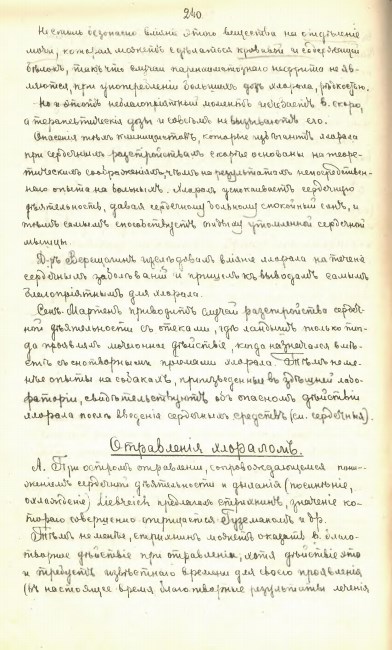 240
Не столь безопасно вліяніе этого вещества на отдѣленіе
мочи, которая можетъ сдѣлаться кровавой и содержащей
бѣлокъ, такъ что случаи паренхиматознаго нефрита не яв-
ляются, при употребленіи большихъ дозъ хлорала,
Но и этотъ неблагопріятный моментъ исчезаетъ в. скоро,
а терапевтическія дозы и совсѣмъ не вызываютъ его.
Опасенія тѣхъ клиницистовъ, которые избѣгаютъ хлорала
при сердечныхъ разстройствахъ скорѣе основаны на теоре-
тическихъ соображеніяхъ, чѣмъ на результатахъ непосредствен-
наго опыта на больныхъ. Хлоралъ успокаиваетъ сердечную
дѣятельность, давая сердечному больному спокойный сонъ, и
тѣмъ самымъ способствуетъ отдыху утомленной сердечной
мышцы.
Д-ръ Верещагинъ изслѣдовалъ вліяніе хлорала на теченіе
сердечныхъ заболѣваній и пришелъ къ выводамъ самымъ
благопріятнымъ для хлорала.
Сенъ-Мартенъ приводитъ случай разстройства сердеч-
ной дѣятельности съ отеками, гдѣ ландышъ только то-
гда проявлялъ мочегонное дѣйствіе, когда назначался вмѣс-
тѣ съ снотворными пріемами хлорала. Тѣмъ не ме-
нѣе опыты на собакахъ, произведенные въ здѣшней лабо-
раторіи, свидѣтельствуютъ объ опасномъ дѣйствіи
хлорала послѣ введенія сердечныхъ средствъ (см. сердечныя).
Отравленія хлораломъ.
А. При остромъ отравленіи, сопровождающемся пони-
женіемъ сердечной дѣятельности и дыханій (посинѣніе,
охлажденіе) предлагалъ стрихнинъ, значеніе ко-
тораго совершенно отрицается Гуземаномъ и др.
Тѣмъ не менѣе, стрихнинъ можетъ оказать в. благо-
творное дѣйствіе при отравленіи, хотя дѣйствіе это
и требуетъ извѣстнаго времени для своего проявленія
(въ настоящее время благотворные результаты леченія